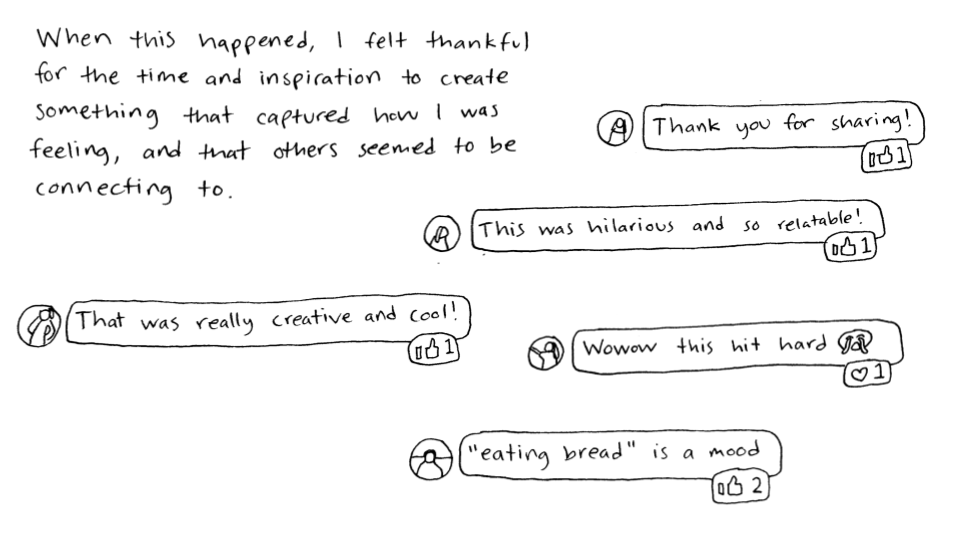 When this happened, I felt thankful
for the time and inspiration to create
something that captured how I was
feeling, and that others seemed to be
connecting to.
Thank you for sharing!
1
This was hilarious and so relatable!
1
That was really creative and cool!
1
Wowow this hit hard
1
"eating bread" is a mood
2